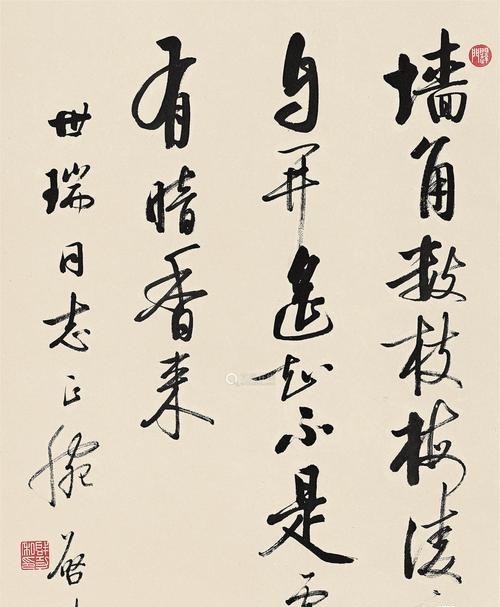 墙角数枝梅凌
自开遥知不是
有暗香来
世瑞同志正